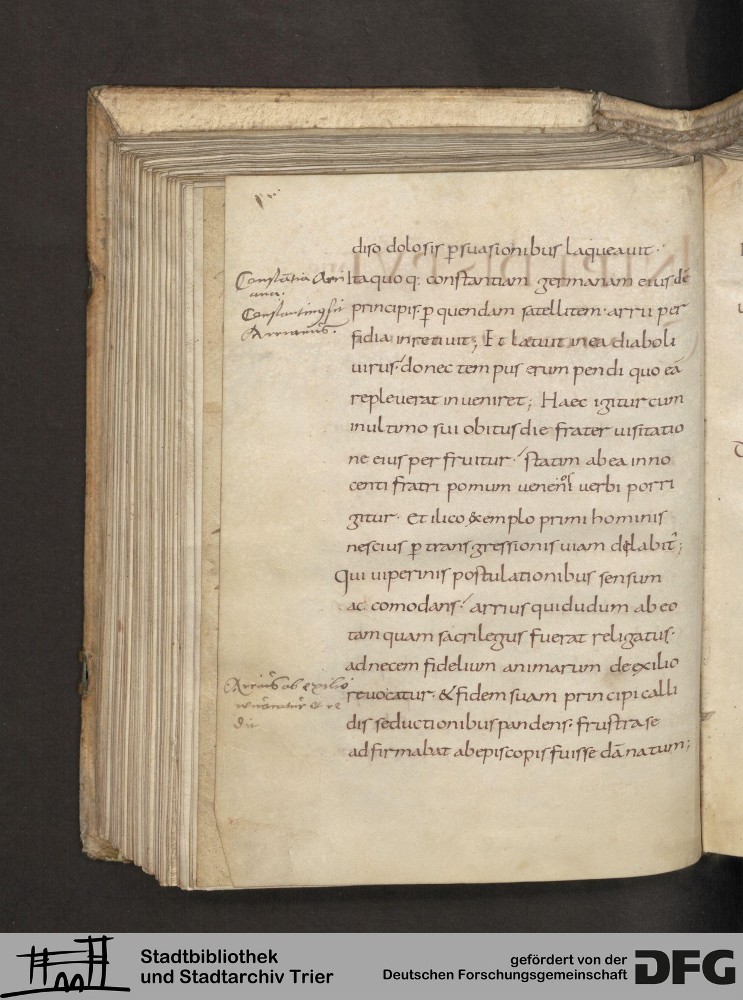 diso dolosis p̱suasionibus laqueauit·
Itaquoq: constantiam germanam eius dē
principis· p̱ quendam satellitem· arrii per
fidia inretiuit; Et latuit in ea diaboli
uirus· donec tempus erumpendi quo eā
repleuerat inueniret; Haec igitur cum
in ultimo sui obitus die frater uisitatio
ne eius perfruitur· statim ab ea inno
centi fratri pomum ueneni uerbi porri
gitur· et ilico exemplo primi hominis
nescius p̱ transgressionis uiam delabit̄;
Qui uiperinis postulationibus sensum
ac comodans· arrius qui dudum ab eo
tamquam sacrilegus fuerat religatus·
ad necem fidelium animarum de exilio
reuocatur· & fidem suam principi calli
dis seductionibus pandens· frustra se
adfirmabat ab episcopis fuisse dānatum;
Constātia Arri
ana.
Arrianus.
Arrius ab exilio
Stadtbibliothek
und Stadtarchiv Trier
gefördert von der
Deutschen Forschungsgemeinschaft
DFG